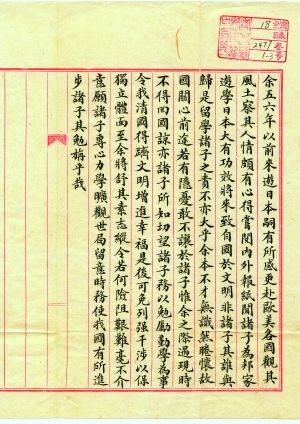 余五六年以前来遊日本嗣有所感更赴歐美各國觀其
風土察其人情頗有心得嘗閱内外報紙聞諸子為邦家
遊學日本大有功效將來致自國於文明非諸子其誰與
歸是留學諸子之責不亦大乎余本不才無識然睠懷故
國關心前途若有隱憂敢不讓於諸子惟余之際遇現時
不得回國諒亦諸子所知切望諸子務以勉勵勤學為事
令我清國得躋文明增進幸福是後可免列强干涉以保
獨立體面至余將舒其素志縱令若何險阻艱難毫不介
意願諸子專心力學曠觀世局留意時務使我國有所進
步諸子其勉旃乎哉
18
2477
1-3